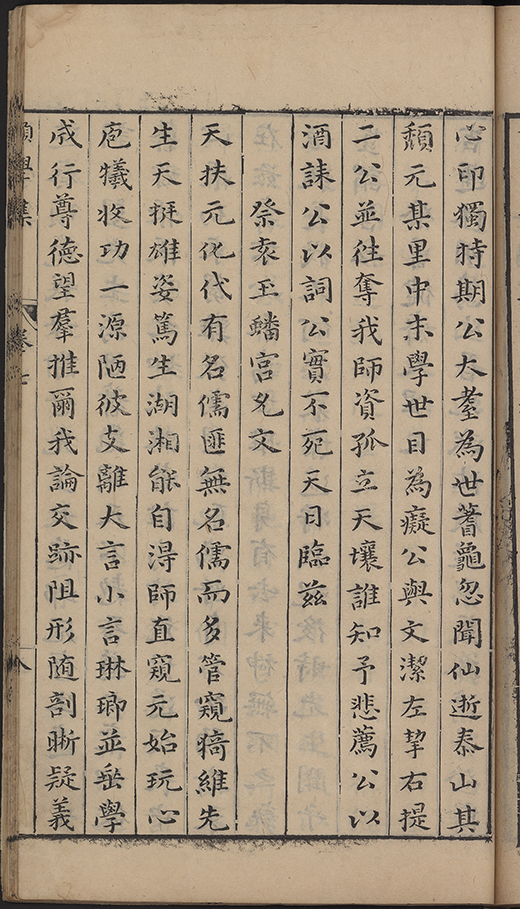 心印獨特期公大耋為世蓍龜忽聞仙逝泰山其
頹元某里中末學世目為癡公與文潔左挈右提
二公並徃奪我師資孤立天壤誰知予悲薦公以
酒誄公以詞公實不死天日臨兹
祭袁玉蟠宫允文
天扶元化代有名儒匪無名儒而多管窺猗維先
生天挺雄姿篤生湖湘能自淂師直窺元始玩心
庖犧收功一源陋彼支離大言小言琳瑯並埀學
成行尊德望羣推爾我論交跡阻形随剖晣疑義
學集
卷七